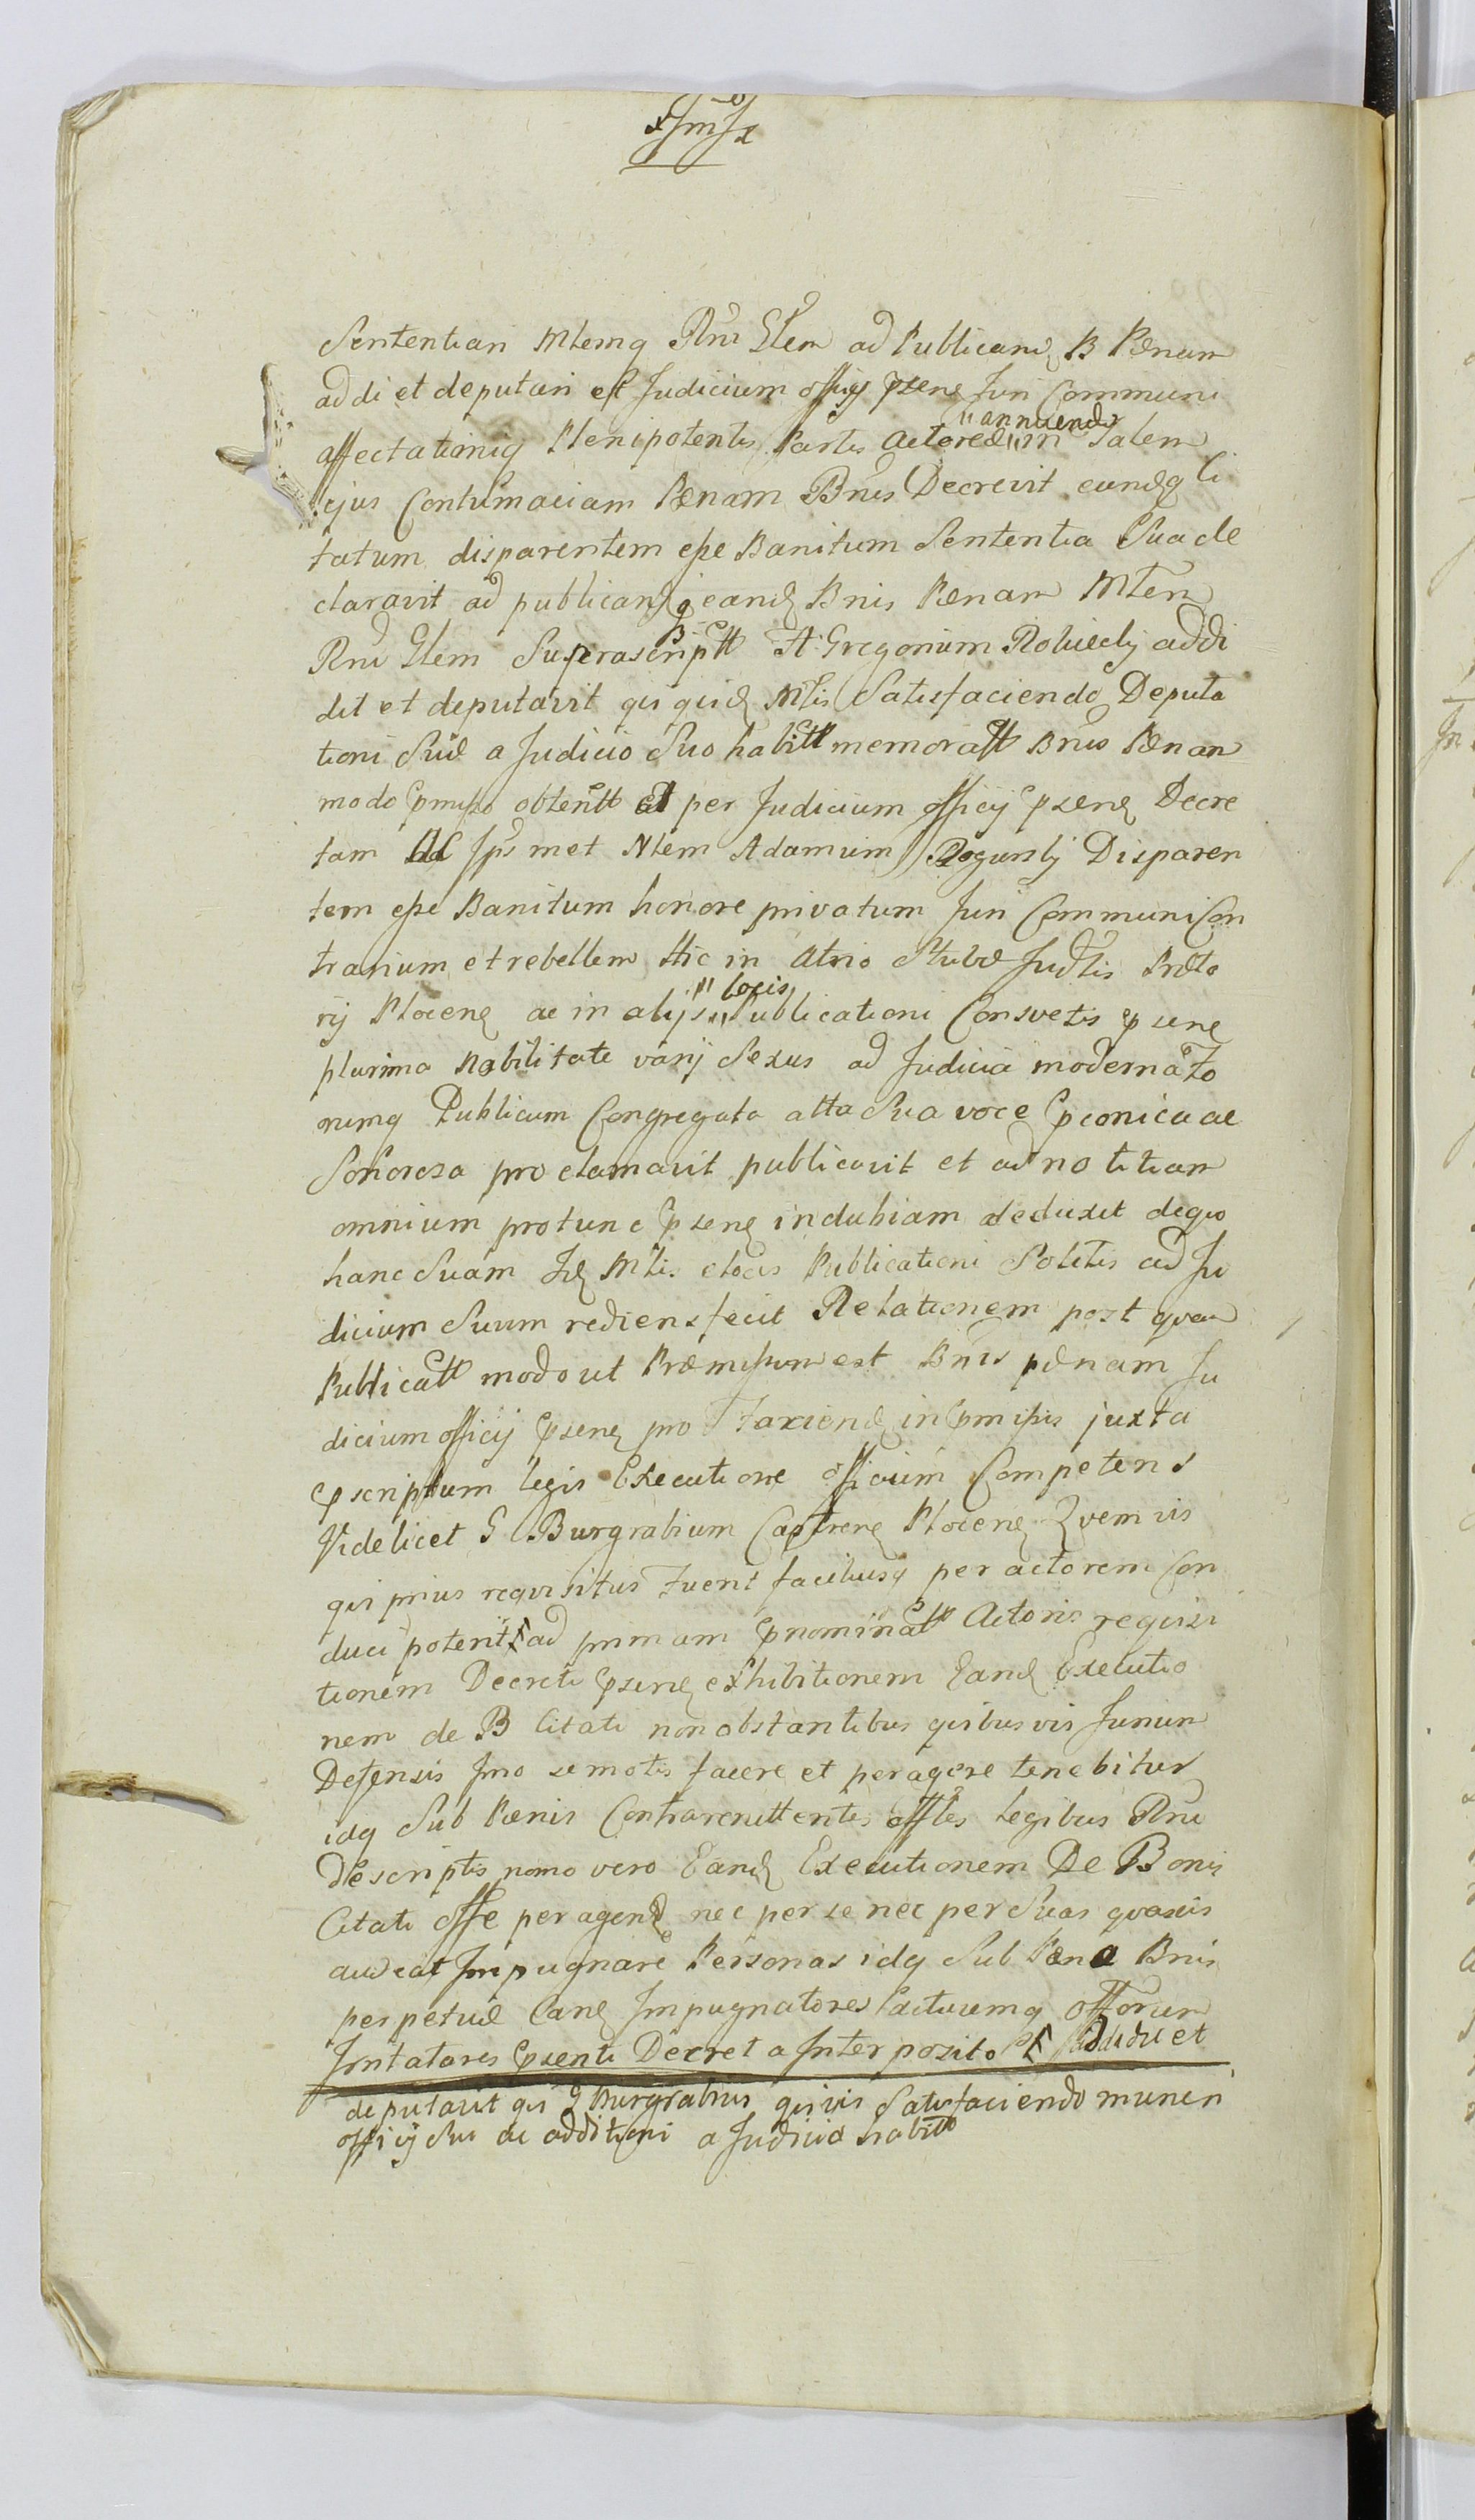 Sententiari Mlemq Rni Glem ad Publicand B Pænam
addi et deputari est Judicium officij Pseng Juri Communi
affectationiq Plenipotentis Partis Actoreæ "annuendo" in Talem
ejus Contumaciam Pænam Bnis Decrevit eundq Ci
tatum disparentem esse Banitum Sententia Sua de
claravit ad publicandq eand Bnis Pænam Mlem
Rni Glem Suprascriptt A: Gregorium addi
dit et deputavit qui quid Mlis Satisfaciendo Deputa
tioni Suæ a Judicio Suo habitt memoratt Bnis Pænam
modo pmisso obtentt et per Judicium officij pseng Decre
tam Ipsmet Nlem Adamum Disparen
tem esse Banitum honore privatum Juri Communi Con
trarium et rebellem Hic in Atrio Stubæ Judlis Præto
rij Ploceng ac in alijs "locis" Publicationi Consvetis pseng
plurima Nobilitate varij Sexus ad Judicia moderna Fo
rumq Publicum Congregata alta Sua voce pconica ac
Sonorosa proclamavit publicavit et ad notitiam
omnium protunc pseng indubiam deduxit deqo
hanc Suam Id Mlis e locis Publicationi Solitis ad Ju
dicium Suum rediens fecit Relationem post quam
Publicatt modo ut Præmissum est Bnis pænam Ju
dicium officij pseng pro Faciend in pmissis juxta
pscriptum legis Executione officium Competens
Videlicet G Burgrabium Castreng Ploceng Qvemvis
qui prius reqvisitus Fuerit faciliusq per actorem Con
duci poterit ad primam pnominatt Actoris reqvisi
tionem Decreti pseng exhibitionem Eand Executio
nem de B Citati non obstantibus quibusvis Jurium
Defensis Imo semotis facere et peragere tenebitur
idq Sub Pænis Contrarenittentes offles Legibus Rni
Descriptis nemo vero Eand Executionem De Bonis
Citati offe peragend nec per se nec per Suas quasvis
audeat Impugnare Personas idq Sub Pæna Bnis
perpetuæ Impugnatores offorum
Irritatores psenti Decreto Interposito addidit et
deputavit qui G Burgrabius quivis Satisfaciendo muneri
officij Sui ac additioni a Judicio habitt